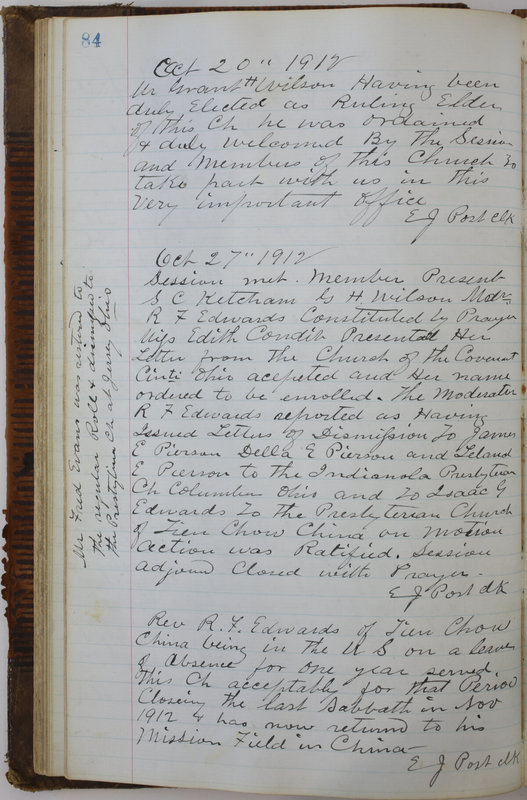 84
Oct 20" 1912
Mr Grant H Wilson Having been
duly Elected as Ruling Elder
of this Ch he was ordained
& duly welcomed By the Session
and Members of this Church to
take part with us in this
Very important office
E J Post clk
Oct 27" 1912
Session met. Member Present
S C Ketcham G H. Wilson Modr
R F Edwards Constituted by Prayer
Miss Edith Condit Presented Her
Letter from the Church of the Covenant
Cinti Ohio accepeted and Her name
ordered to be enrolled. The Moderator
R F Edwards reported as Having
Issued Letters of Dismission To James
E Pierson Della E Pierson and Leland
E Pierson to the Indianola Presbyterian
Ch Columbus Ohio and To Isaac G
Edwards To the Presbyterian Church
of Lien Chow China on Motion
action was Ratified. Session
adjound Closed with Prayer.
E J Post clk
Rev R. F. Edwards of Lien Chow
China being in the U S on a leave
of Absence for one year served.
this Ch acceptably for that Period
Closing the last Sabbath in Nov
1912 & has now returned to his
Mission Field in China
E J Post clk
Mr Fred Evans was restored to
the regular Roll & dismissed to
the Presbyterian Ch at Jersey Ohio